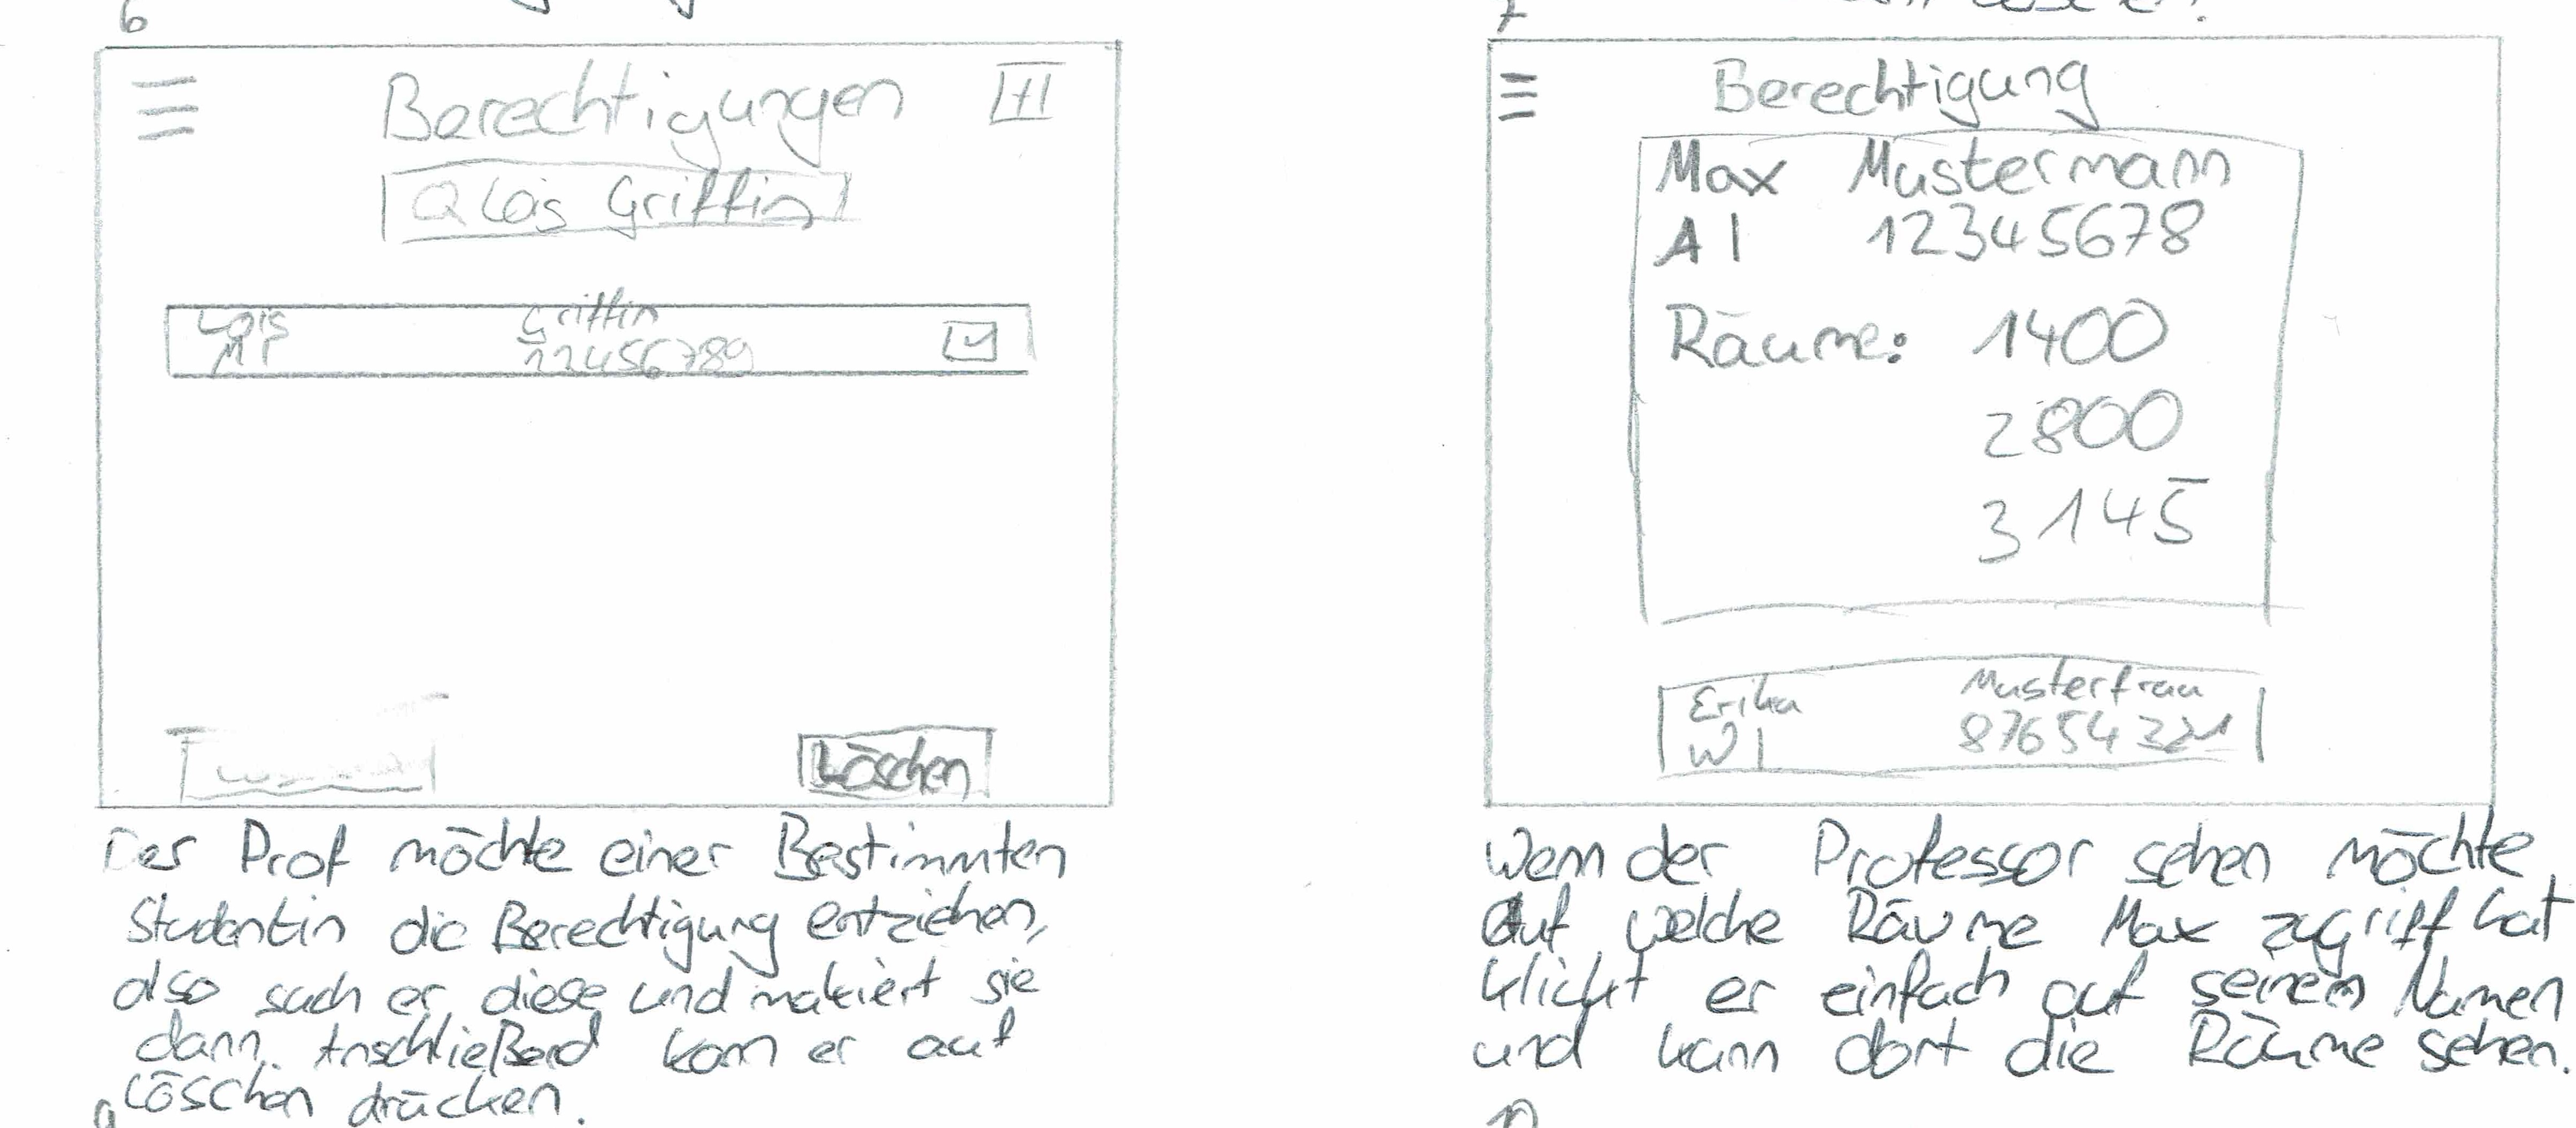 6
Berechtigungen
Lois Griffin
Lois Griffin
12456789
Löschen
Der Prof möchte einer Bestimmten
Studentin die Berechtigung entziehen,
also such er diese und makiert sie
dann. Anschließend kann er auf
Löschen drücken.
7
Berechtigung
Max Mustermann
AI 12345678
Räume: 1400
2800
3145
Erika Musterfrau
WI 87654321
Wenn der Professor sehen möchte
auf welche Räume Max zugriff hat
klickt er einfach auf seinem Namen
und kann dort die Räume sehen.